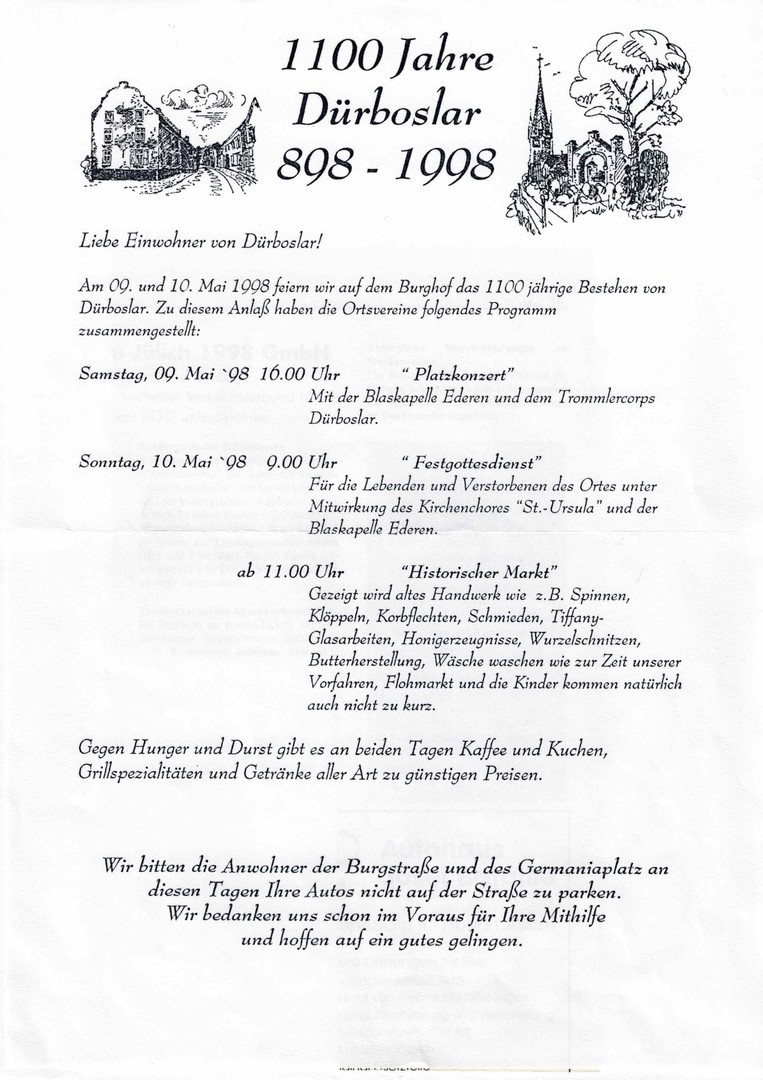 1100 Jahre
Dürboslar
898 - 1998
Liebe Einwohner von Dürboslar!
Am 09. und 10. Mai 1998 feiern wir auf dem Burghof das 1100 jährige Bestehen von
Dürboslar. Zu diesem Anlaß haben die Ortsvereine folgendes Programm
zusammengestellt:
Samstag, 09. Mai `98 16.00 Uhr " Platzkonzert"
Mit der Blaskapelle Ederen und dem Trommlercorps
Dürboslar.
Sonntag, 10. Mai `98 9.00 Uhr " Festgottesdienst"
Für die Lebenden und Verstorbenen des Ortes unter
Mitwirkung des Kirchenchores "St.-Ursula" und der
Blaskapelle Ederen.
ab 11.00 Uhr "Historischer Markt"
Gezeigt wird altes Handwerk wie z.B. Spinnen,
Klöppeln, Korbflechten, Schmieden, Tiffany-
Glasarbeiten, Honigerzeugnisse, Wurzelschnitzen,
Butterherstellung, Wäsche waschen wie zur Zeit unserer
Vorfahren, Flohmarkt und die Kinder kommen natürlich
auch nicht zu kurz.
Gegen Hunger und Durst gibt es an beiden Tagen Kaffee und Kuchen,
Grillspezialitäten und Getränke aller Art zu günstigen Preisen.
Wir bitten die Anwohner der Burgstraße und des Germaniaplatz an
diesen Tagen Ihre Autos nicht auf der Straße zu parken.
Wir bedanken uns schon im Voraus für Ihre Mithilfe
und hoffen auf ein gutes gelingen.